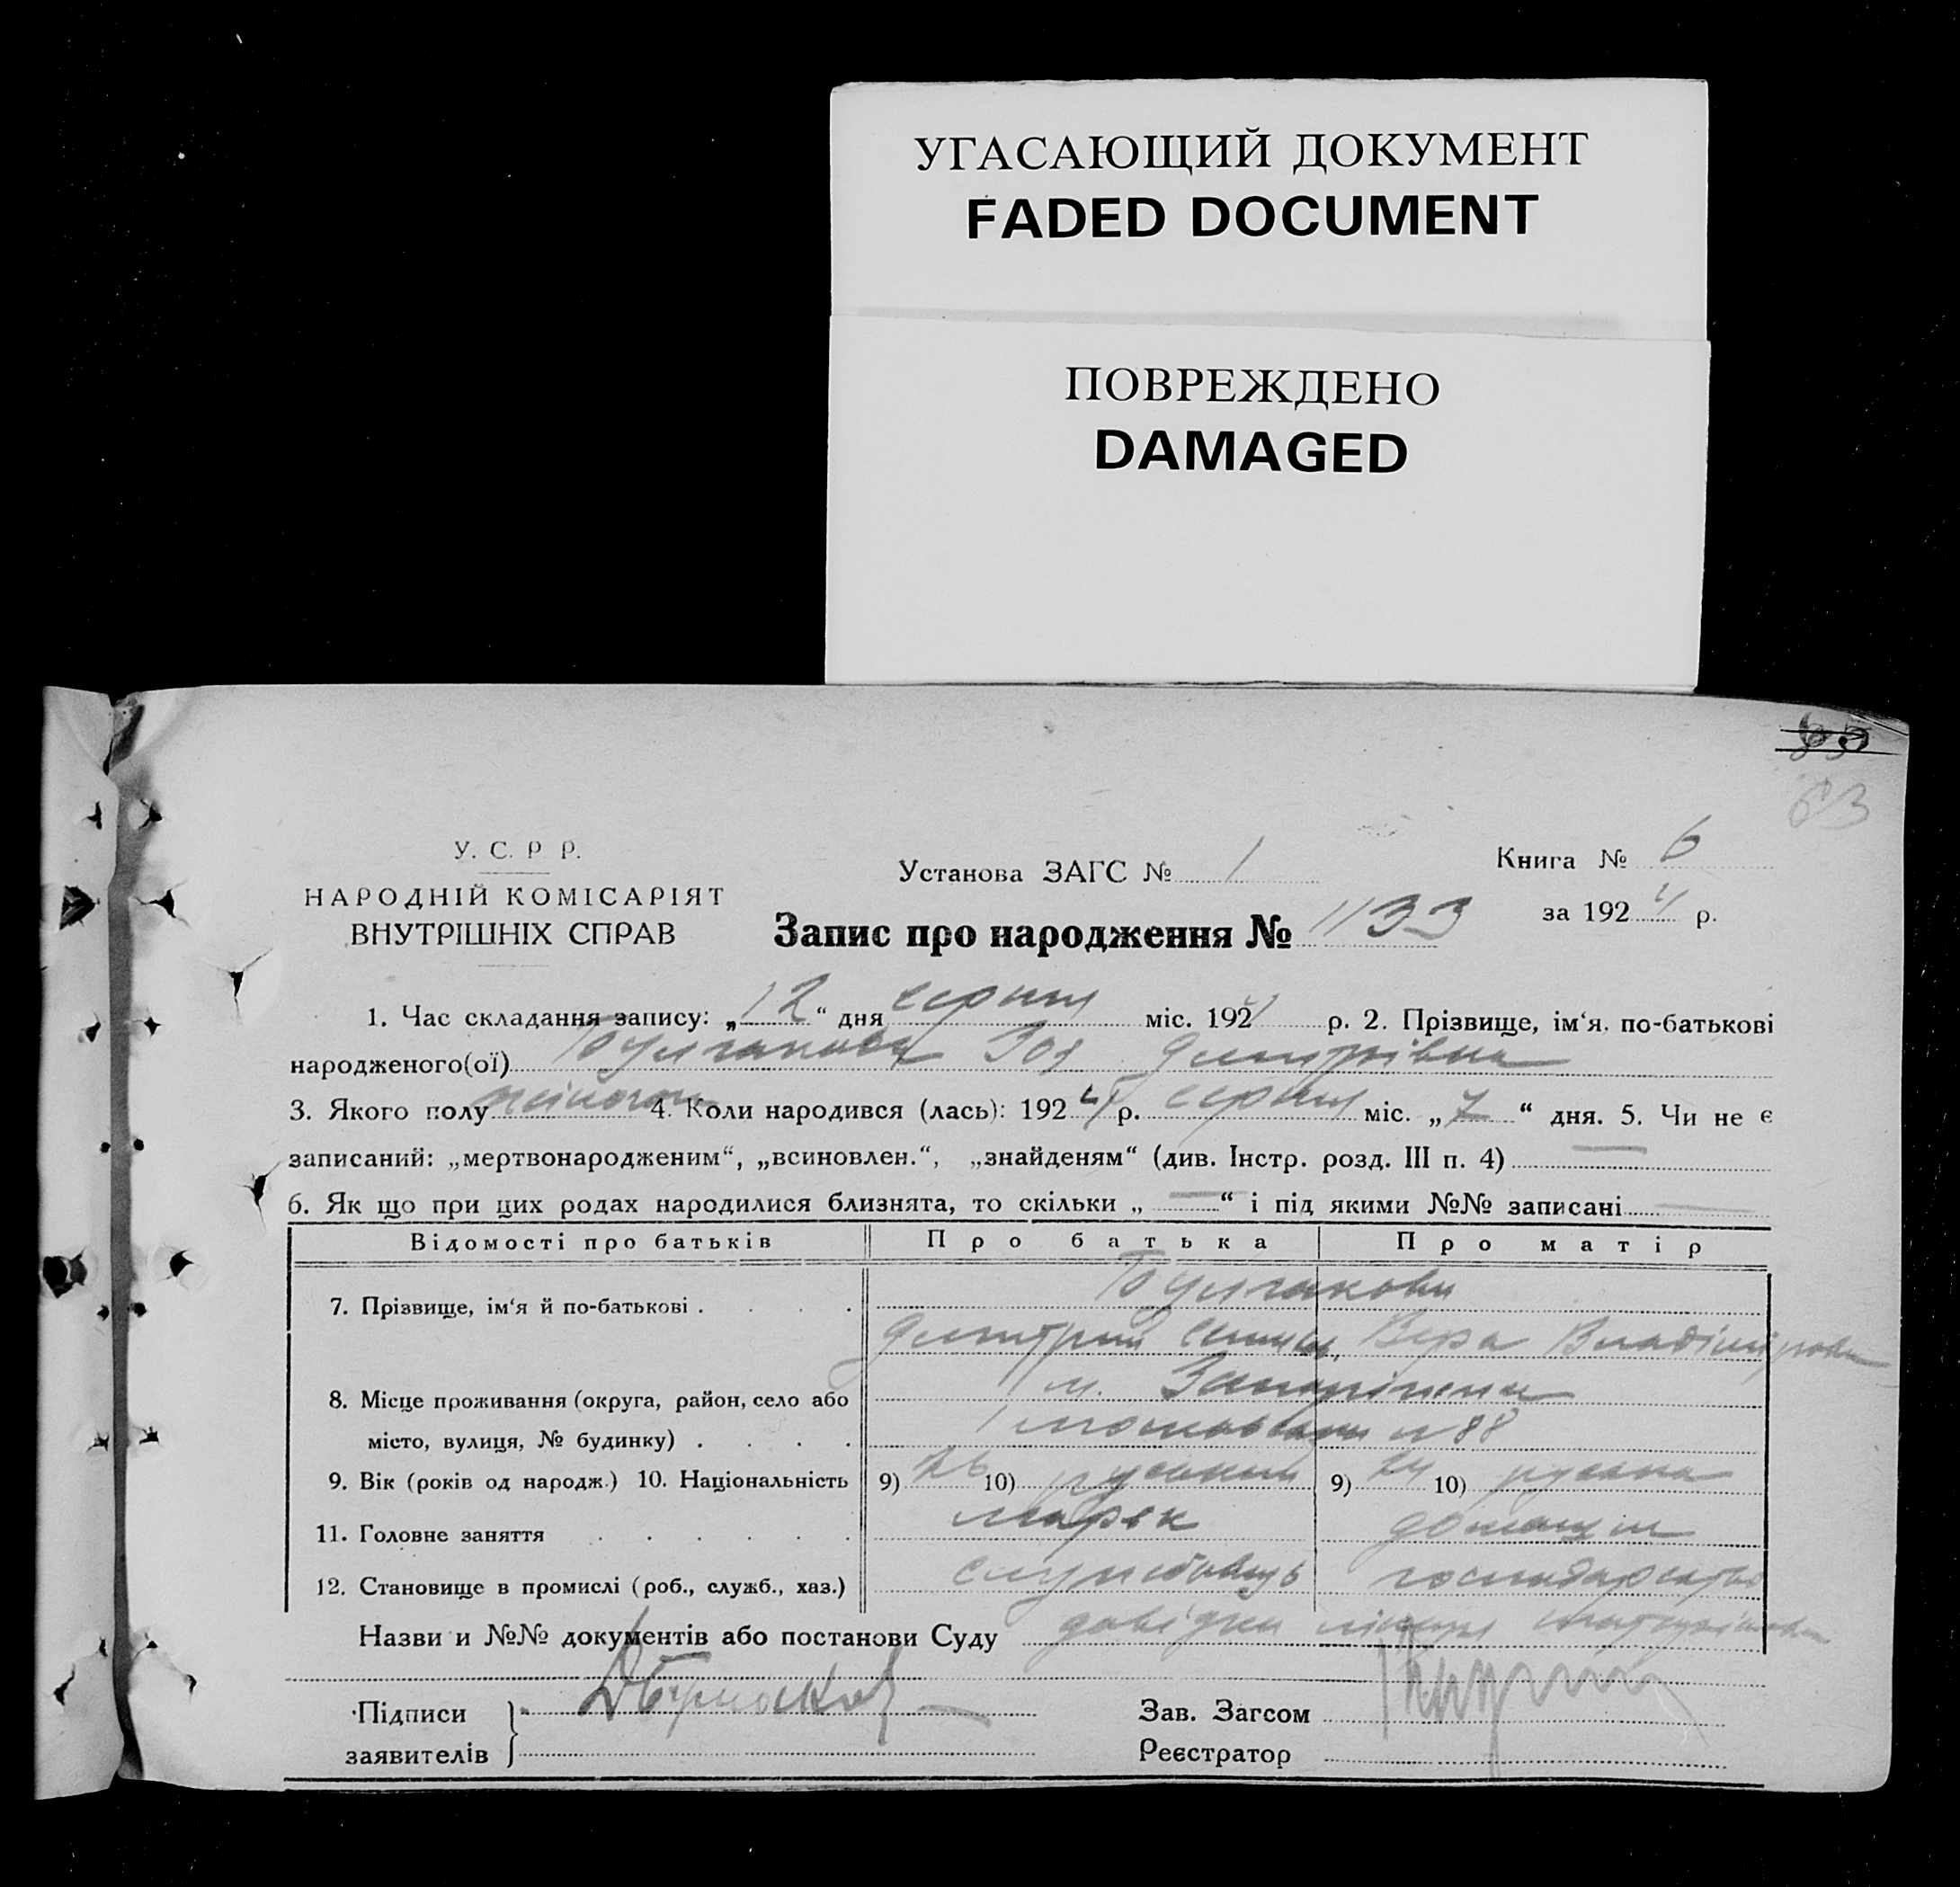 УГАСАЮЩИЙ ДОКУМЕНТ
FADED DOCUMENT
ПОВРЕЖДЕНО
DAMAGED
63
У. С. Р Р.
НАРОДНІЙ КОМІСАРІЯТ
ВНУТРІШНІХ СПРАВ
Установа ЗАГС № 1
Книга № 6
за 192 р.
Запис про народження № 1133
1. Час складання запису: „12“ дня серпня міс. 192 р. 2. Прізвище, ім‘я. по-батькові
народженого(ої) Булгакова Зоя Дмитрівна
3. Якого полу жіночого 4. Коли народився (лась): 192 р. серпня міс. „7“ дня. 5. Чи не є
записаний: „мертвонародженим“, „всиновлен.“, „знайденям“ (див. Інстр. розд. III п. 4) —
6. Як що при цих родах народилися близнята, то скільки „ — “ і під якими №№ записані —
Відомості про батьків Про батька Про матір
7. Прізвище, ім‘я й по-батькові . . . . Булгакови
Дмитрий Вера Владіміровна
8. Місце проживання (округа, район, село або м. Запоріжжя
місто, вулиця, № будинку) . . . . № 88
9. Вік (років од народж.) 10. Національність 9) 26 10) руський 9) 24 10) руська
11. Головне заняття . . . . . .
12. Становище в промислі (роб., служб., хаз.) службовець господарство
Назви и №№ документів або постанови Суду довідка
Підписи
заявителів
Зав. Загсом
Реєстратор